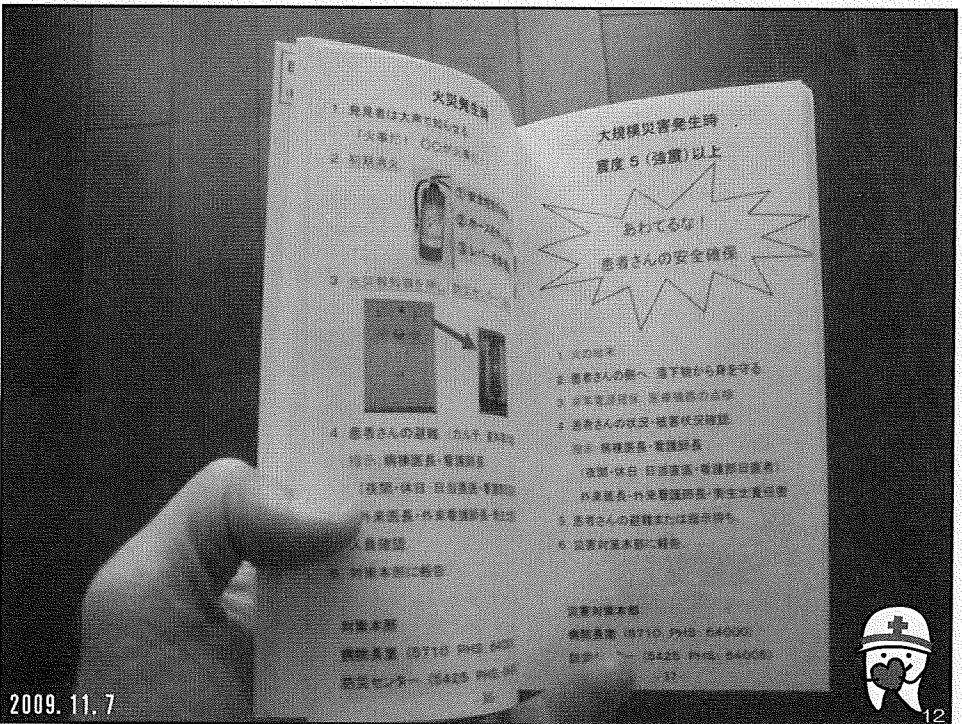 火災発生時
1 発見者は大声で知らせる
「火事だ！ 〇〇が火事だ！」
2 初期消火
3 火災報知器を押し
4 患者さんの避難
指示：病棟医長・看護師長
（夜間・休日：日当直医・看護部
外来医長・外来看護師長・
人員確認
対策本部に報告
対策本部
病院長室（5710 PHS:
防災センター（5425 PHS:
大規模災害発生時
震度5（強震）以上
あわてるな！
患者さんの安全確保
1 火の始末
2 患者さんの側へ 落下物から身を守る
3 非常電源確保、医療機器の点検
4 患者さんの状況・被害状況確認
指示：病棟医長・看護師長
（夜間・休日：日当直医・看護部日直者）
外来医長・外来看護師長・衛生士責任者
5 患者さんの避難または指示待ち
6 災害対策本部に報告
災害対策本部
病院長室（5710 PHS: 64000）
（5425 PHS: 64005）
37
2009. 11. 7
12